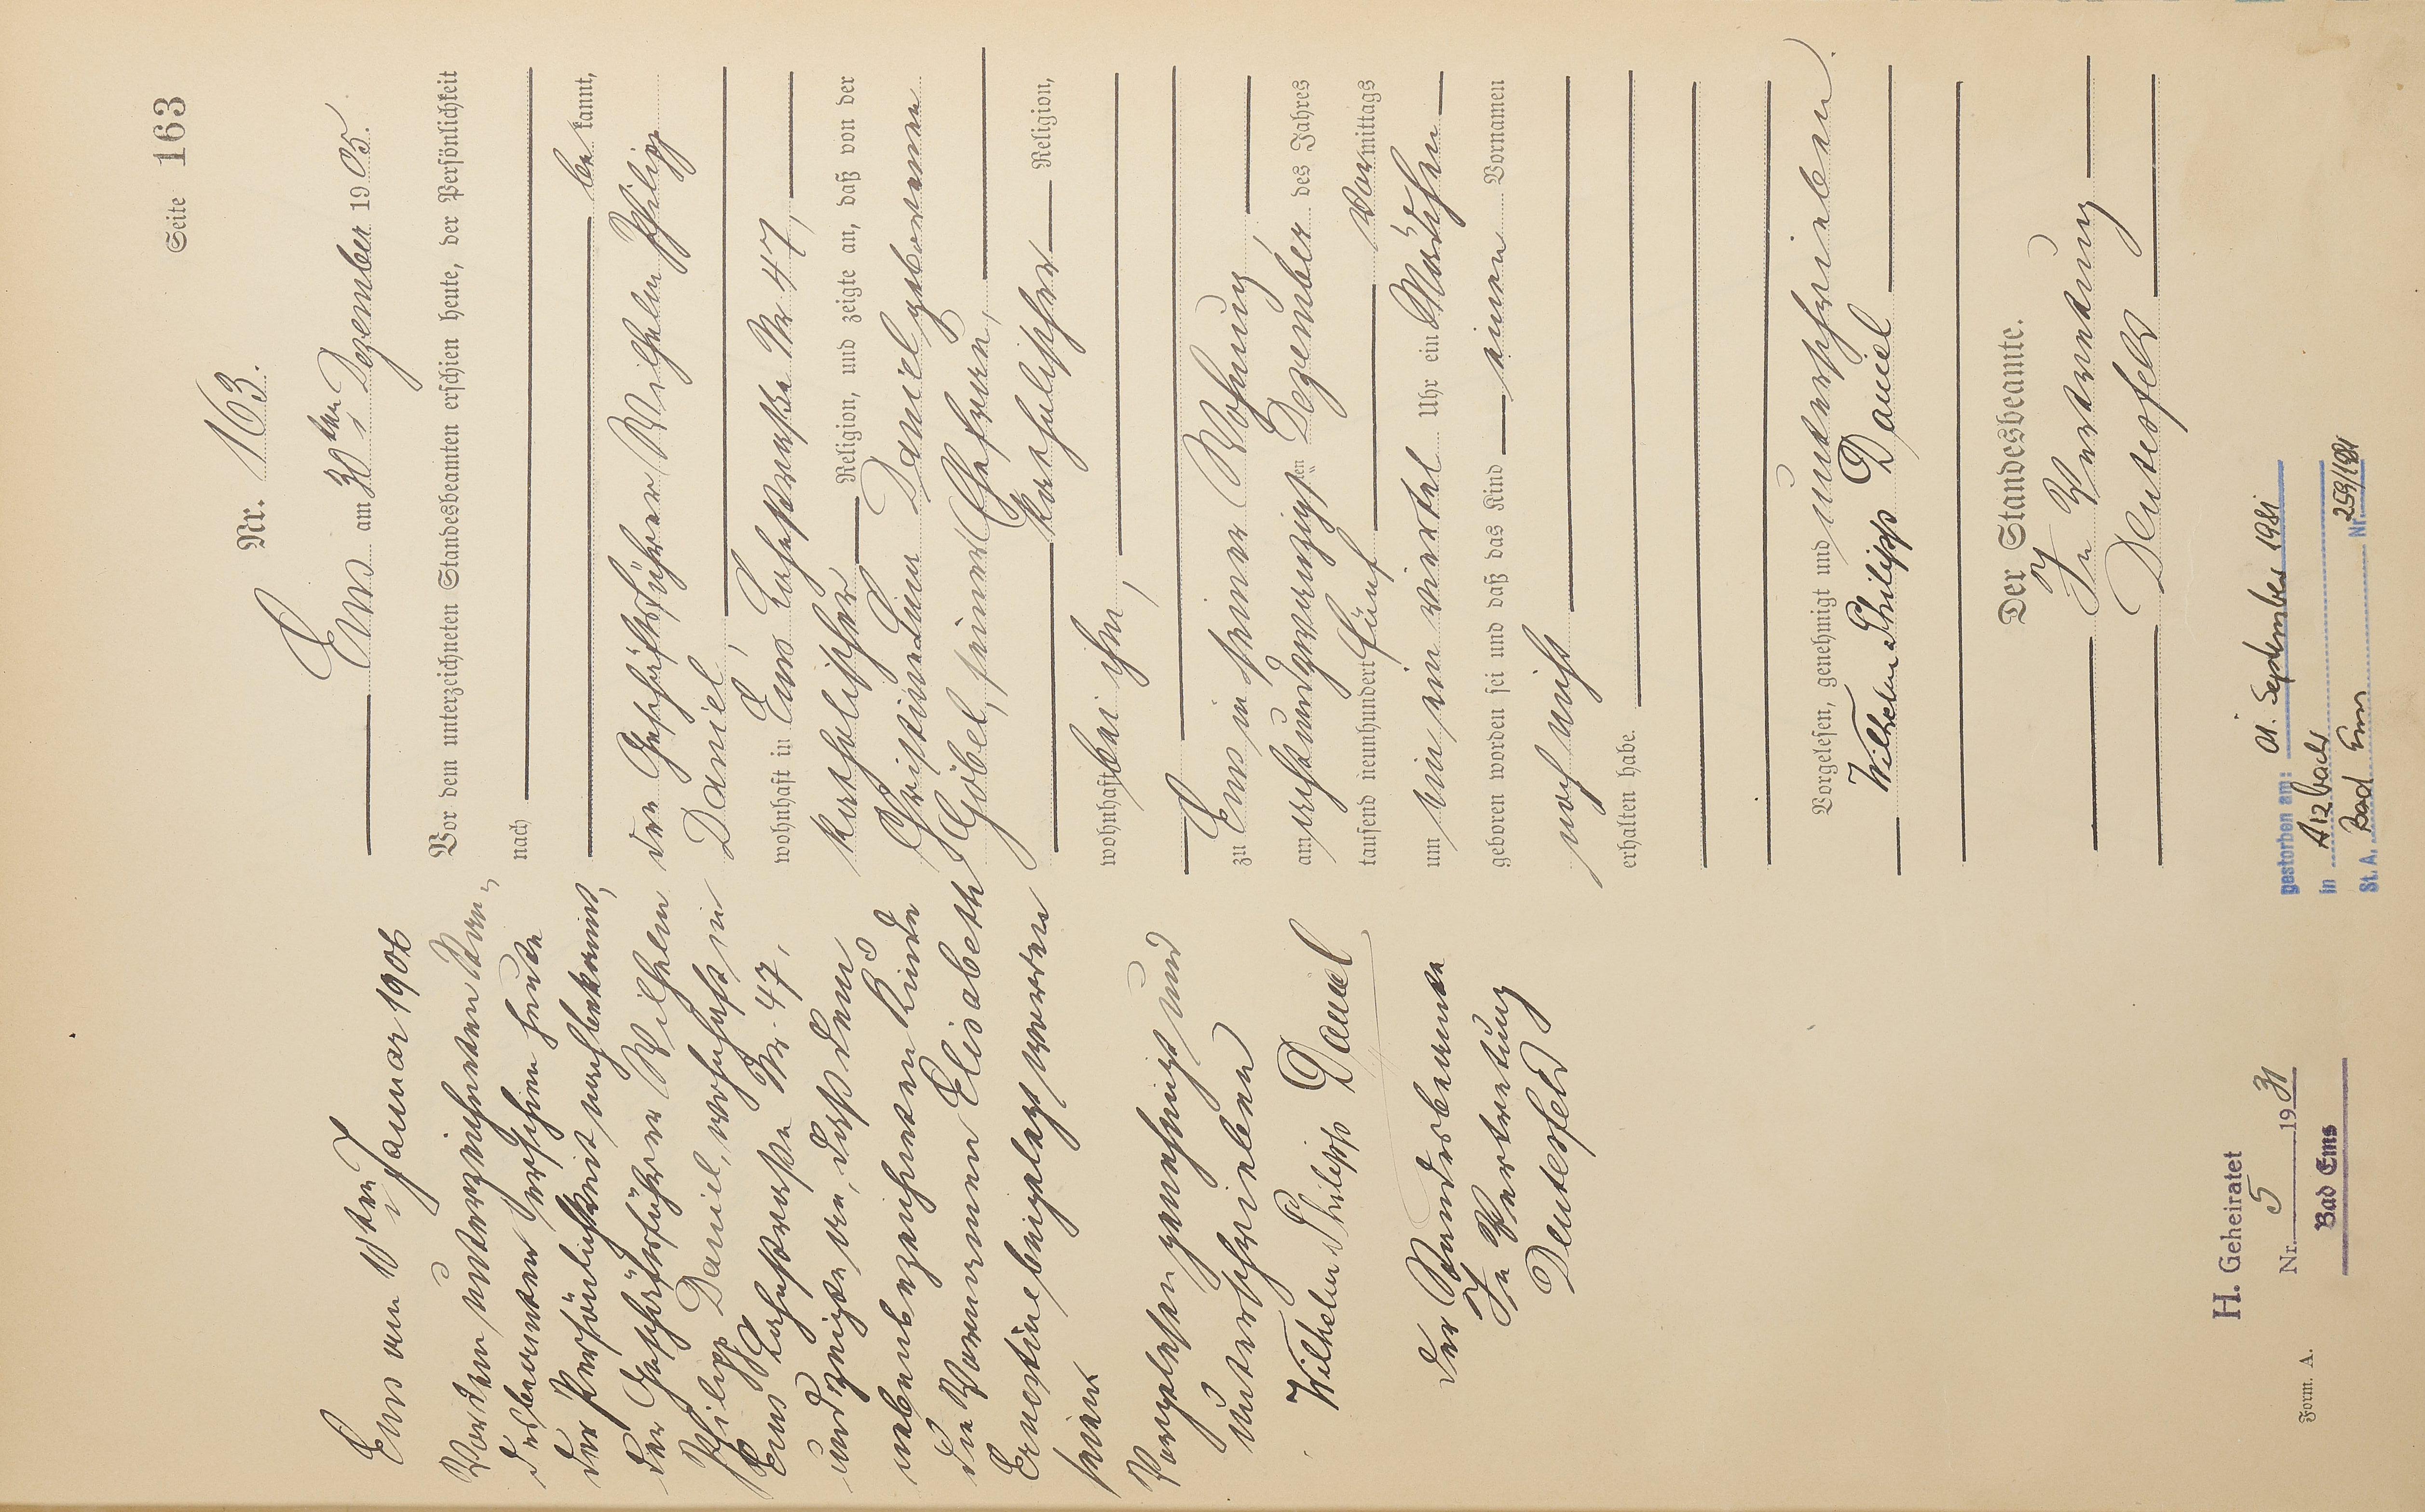 Seite 163
Nr. 163.
Ems am 30ten Dezember 1905.
Vor dem unterzeichneten Standesbeamten erschien heute, der Persönlichkeit
nach
bekannt,
der Geschäftsführer Wilhelm Philipp
Daniel,
wohnhaft in Ems Lahnstrasse Nr 47,
katholischer Religion, und zeigte an, daß von der
Christine Daniel geborenen
Göbel, seiner Ehefrau,
katholischer Religion,
wohnhaft bei ihm,
zu Ems in seiner Wohnung,
am achtundzwanzigsten Dezember des Jahres
tausend neunhundert fünf vormittags
um ein viertel Uhr ein Mädchen
geboren worden sei und daß das Kind einen Vornamen
noch nicht
erhalten habe.
Vorgelesen, genehmigt und unterschrieben.
Wilhelm Philipp Daniel
Der Standesbeamte.
In Vertretung
Deutesfeld
Ems am 10ten Januar 1906
Vor dem unterzeichneten Stan-
desbeamten erschien heute
der Persönlichkeit nach bekannt,
der Geschäftsführer Wilhelm
Philipp Daniel, wohnhaft in
Ems Lahnstrasse Nr. 47,
und zeigte an, dass dem
nebenbezeichneten Kinde
die Vornamen Elisabeth
Ernestine beigelegt worden
seien
Vorgelesen genehmigt und
unterschrieben
Wilhelm Philipp Daniel
Der Standesbeamte
In Vertretung
Deutesfeld
H. Geheiratet
Nr. 5 1931
Bad Ems
gestorben am: 01. September 1981
in Arzbach
St. A. Bad Ems Nr. 259/1981
Form. A.